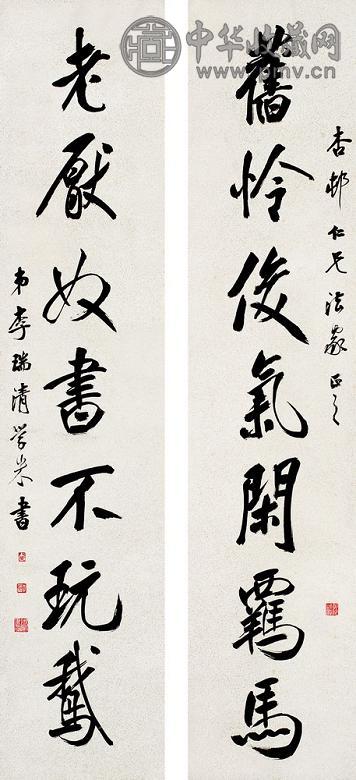 中华收藏网
www.pmv.cn
杏邨仁兄法家正之
舊怜俊氣閑羈馬
老厭奴書不玩鵞
弟李瑞清学米書